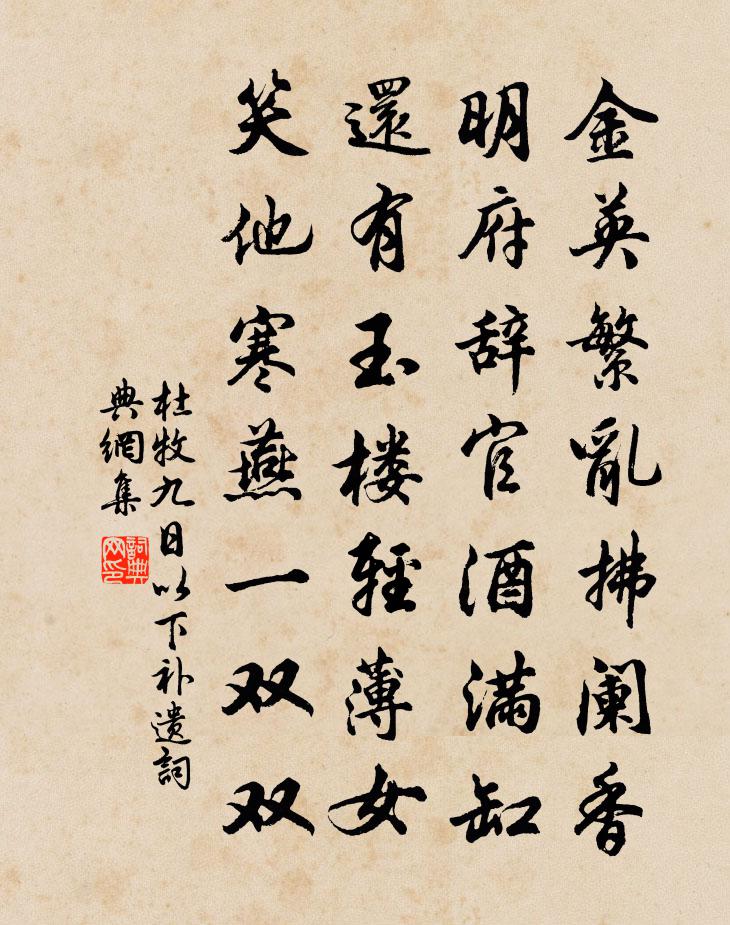 金英繁亂拂阑香
明府辞官酒满缸
還有玉楼輕薄女
笑他寒燕一双双
杜牧九日以下补遗詞
典網集
詞典網印